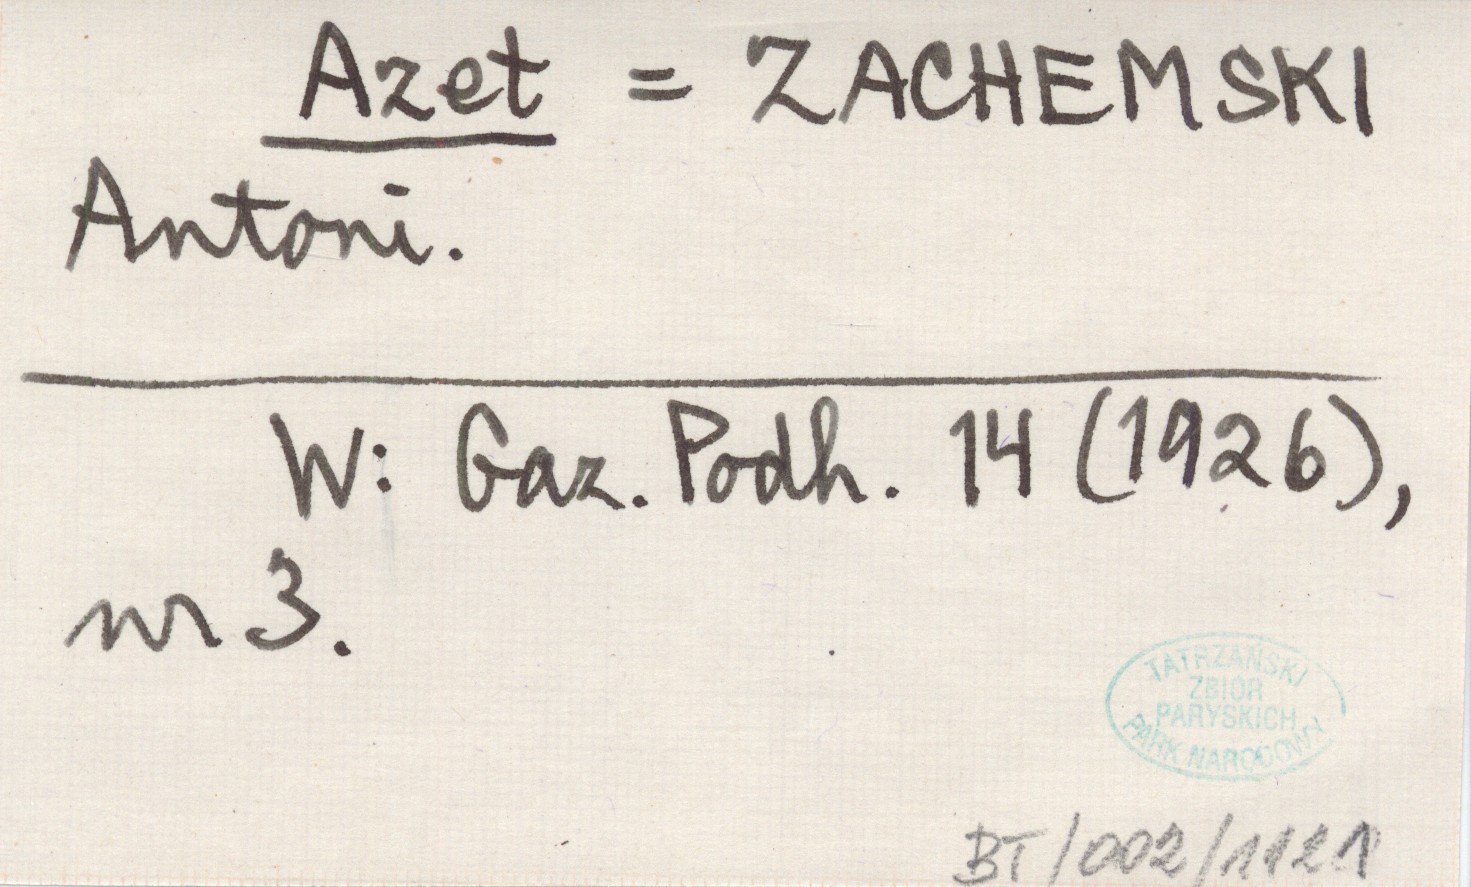 Azet = ZACHEMSKI
Antoni.
W: Gaz. Podh. 14 (1926),
nr 3.
TATRZAŃSKI
ZBIÓR
PARYSKICH
PARK NARODOWY
BT/002/1121